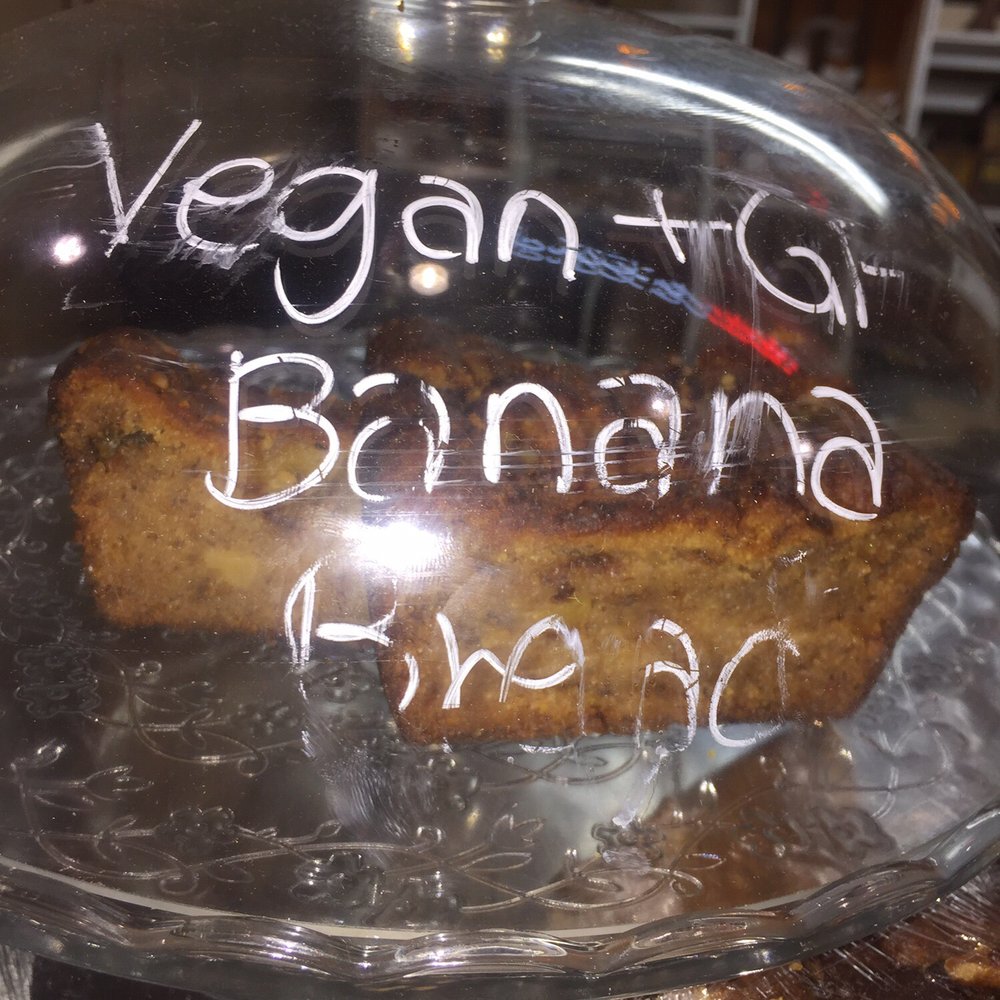 Vegan + GF
Banana
Bread